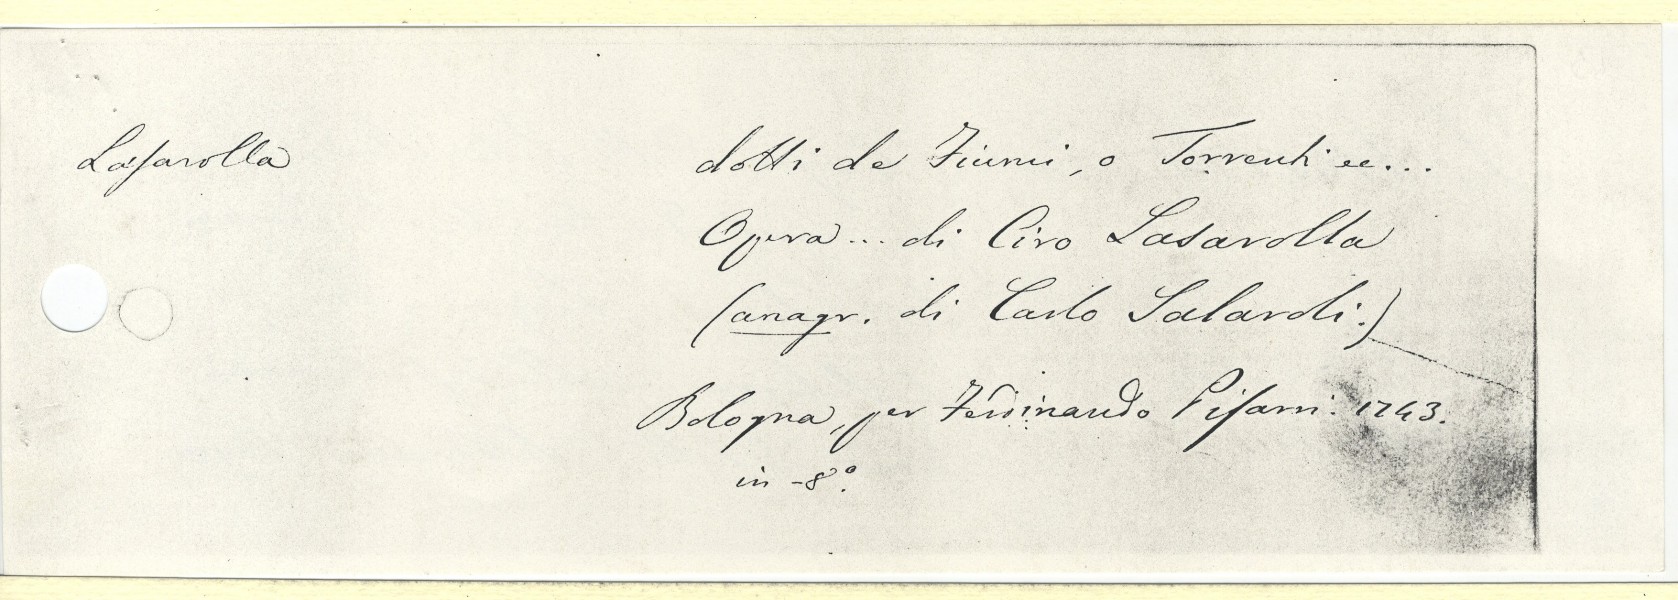 Lasarolla
dotti de Fiumi, o Torrenti ec...
Opera ... di Ciro Lasarolla
(anagr. di Carlo Salaroli.)
Bologna, per Ferdinando Pisarri. 1743.
in -8º.